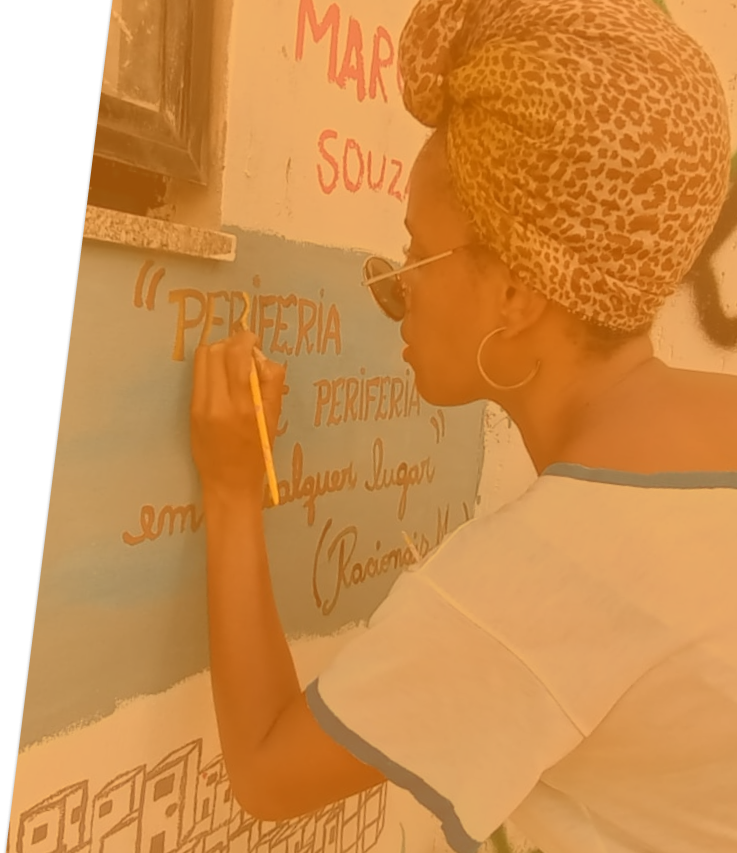 MAR
SOUZA
"PERIFERIA
É PERIFERIA"
em qualquer lugar
(Racionais